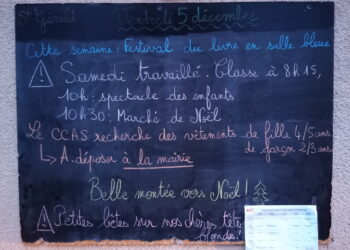 St Gérald
Vendredi 5 décembre
Cette semaine : Festival du livre en salle bleue
! Samedi travaillé. Classe à 8h15,
10h : spectacle des enfants
10h30 : Marché de Noël
Le CCAS recherche des vêtements de fille 4/5 ans
de garçon 2/3 ans
↳ A déposer à la mairie
Belle montée vers Noël !
! Petites bêtes sur nos chères têtes
blondes !